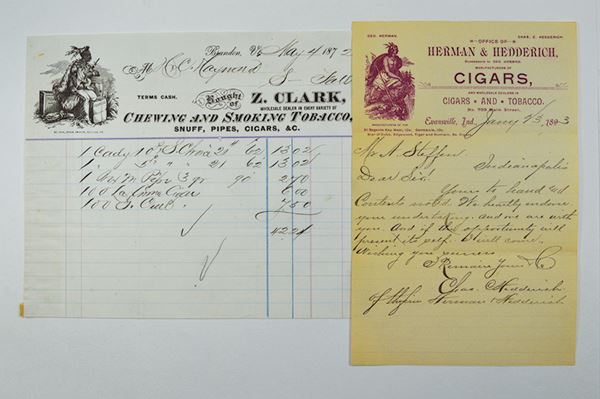 Brandon, Vt. May 4 187
M H C Haywood
TERMS CASH.
Bought of Z. CLARK,
WHOLESALE DEALER IN EVERY VARIETY OF
CHEWING AND SMOKING TOBACCO,
SNUFF, PIPES, CIGARS, &C.
1 Cady 21 62 13.02
1 " " 21 62 13.02
1 3 gr 90 2.70
100 Cigar 6.00
100 7.50
42.24
GEO. HERMAN. CHAS. C. HEDDERICH.
OFFICE OF
HERMAN & HEDDERICH,
Successors to GEO. HERMAN,
MANUFACTURERS OF
CIGARS,
AND WHOLESALE DEALERS IN
CIGARS • AND • TOBACCO.
No. 703 Main Street,
Evansville, Ind., Jany 23 1893
Mr A. Steffen
Indianapolis
Dear Sir!
Yours to hand and
Contents noted. We heartly endorse
your undertaking and we are with
you. And if the opportunity will
present its self I will come.
Wishing you success
I Remain Yours &c
Chas. Hedderich
of the firm Herman & Hedderich